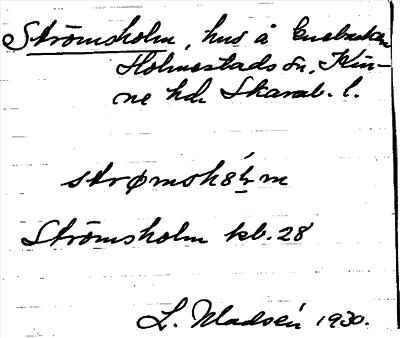 Strömsholm, hus å Enebacken
Holmestads sn, Kin-
ne hd. Skarab. l.
strømsh8ḷm
Strömsholm kb. 28
L. Madsén 1930.